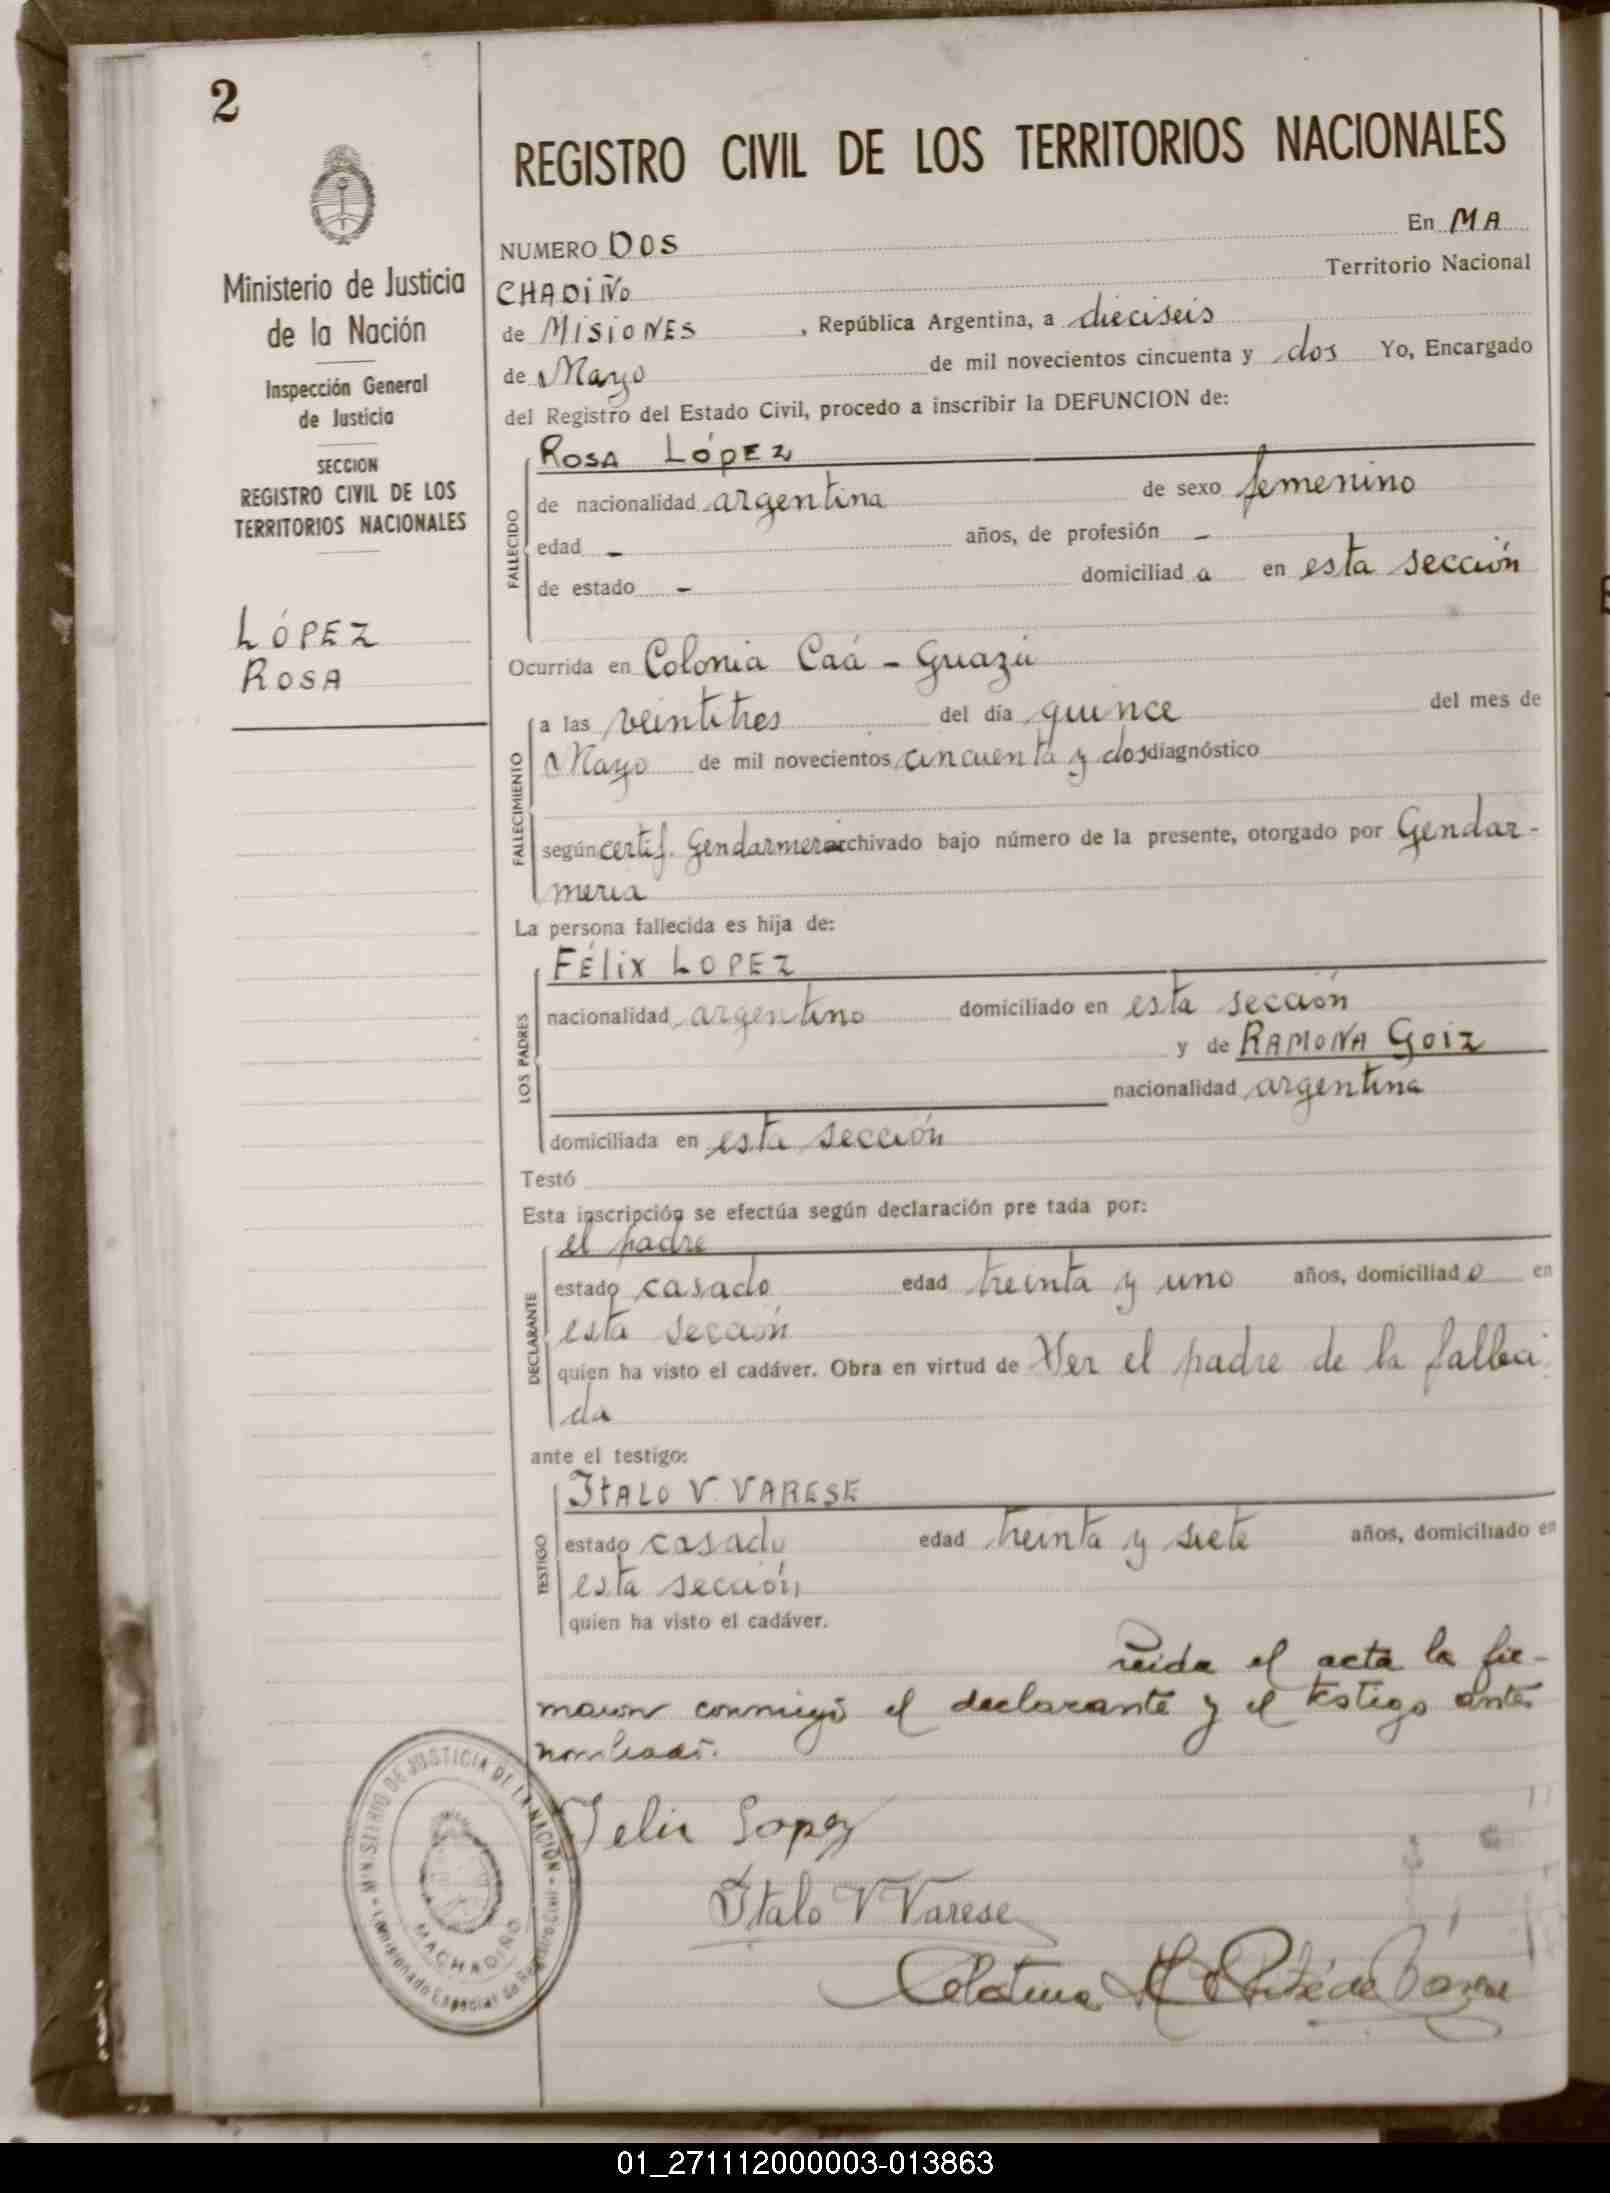 2
REGISTRO CIVIL DE LOS TERRITORIOS NACIONALES
Ministerio de Justicia
de la Nación
Inspección General
de Justicia
SECCION
REGISTRO CIVIL DE LOS
TERRITORIOS NACIONALES
LÓPEZ
ROSA
NUMERO DOS En MA
CHADIÑO Territorio Nacional
de MISIONES , República Argentina, a dieciseis
de Mayo de mil novecientos cincuenta y dos Yo, Encargado
del Registro del Estado Civil, procedo a inscribir la DEFUNCION de:
ROSA LÓPEZ
FALLECIDO
de nacionalidad argentina de sexo femenino
edad - años, de profesión -
de estado - domiciliad a en esta sección
Ocurrida en Colonia Caá - Guazú
FALLECIMIENTO
a las veintitres del día quince del mes de
Mayo de mil novecientos cincuenta y dos diagnóstico
según certif. Gendarmeria archivado bajo número de la presente, otorgado por Gendar-
meria
La persona fallecida es hija de:
LOS PADRES
FÉLIX LOPEZ
nacionalidad argentino domiciliado en esta sección
y de RAMONA GOIZ
nacionalidad argentina
domiciliada en esta sección
Testó
Esta inscripción se efectúa según declaración pre tada por:
DECLARANTE
el padre
estado casado edad treinta y uno años, domiciliad o en
esta sección
quien ha visto el cadáver. Obra en virtud de Ser el padre de la falleci
da
ante el testigo:
TESTIGO
ITALO V. VARESE
estado casado edad treinta y siete años, domiciliado en
esta sección
quien ha visto el cadáver.
Leida el acta la fir-
maron conmigo el declarante y el testigo antes
nombrado.
Felix Lopez
Italo V Varese
MINISTERIO DE JUSTICIA DE LA NACIÓN
Comisionado Especial de Registro Civil
MACHADIÑO
01_271112000003-013863